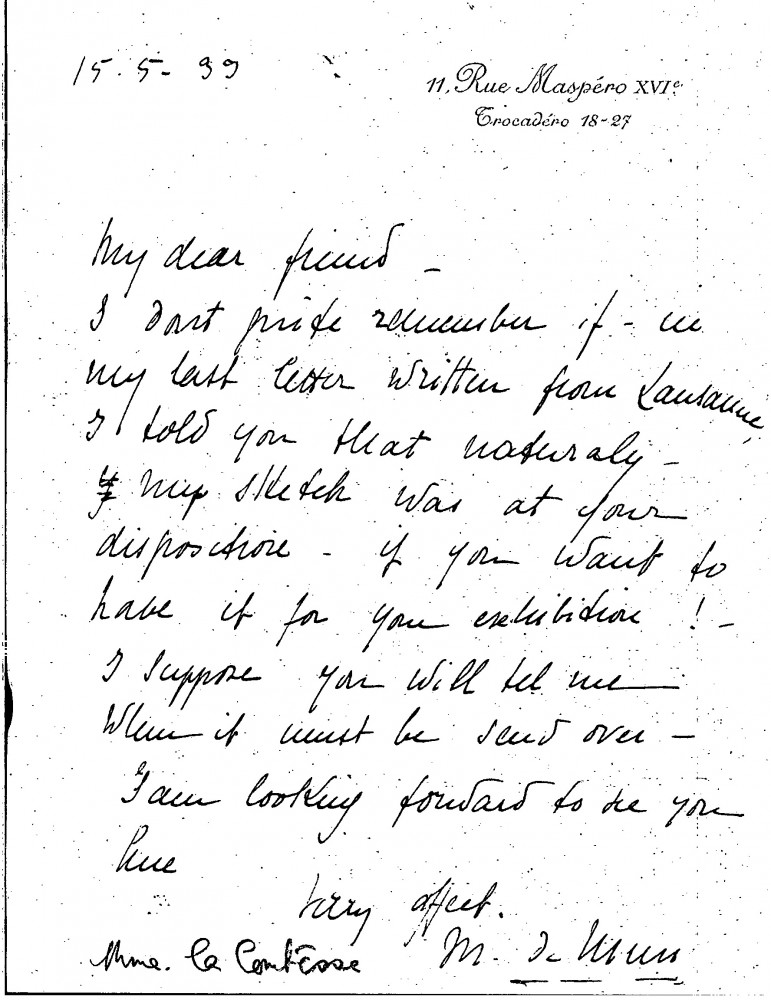 15.5-39
11, Rue Maspéro XVIe
Trocadéro 18-27
My dear friend -
I dont quite remember if - in
my last letter written from Lausanne,
I told you that naturaly -
my sketch was at your
disposition - if you want to
have it for your exhibition ! -
I suppose you will tel me
when it must be send over -
I am looking forward to see you
here
Very affect.
M. de Mun
Mme. la Comtesse